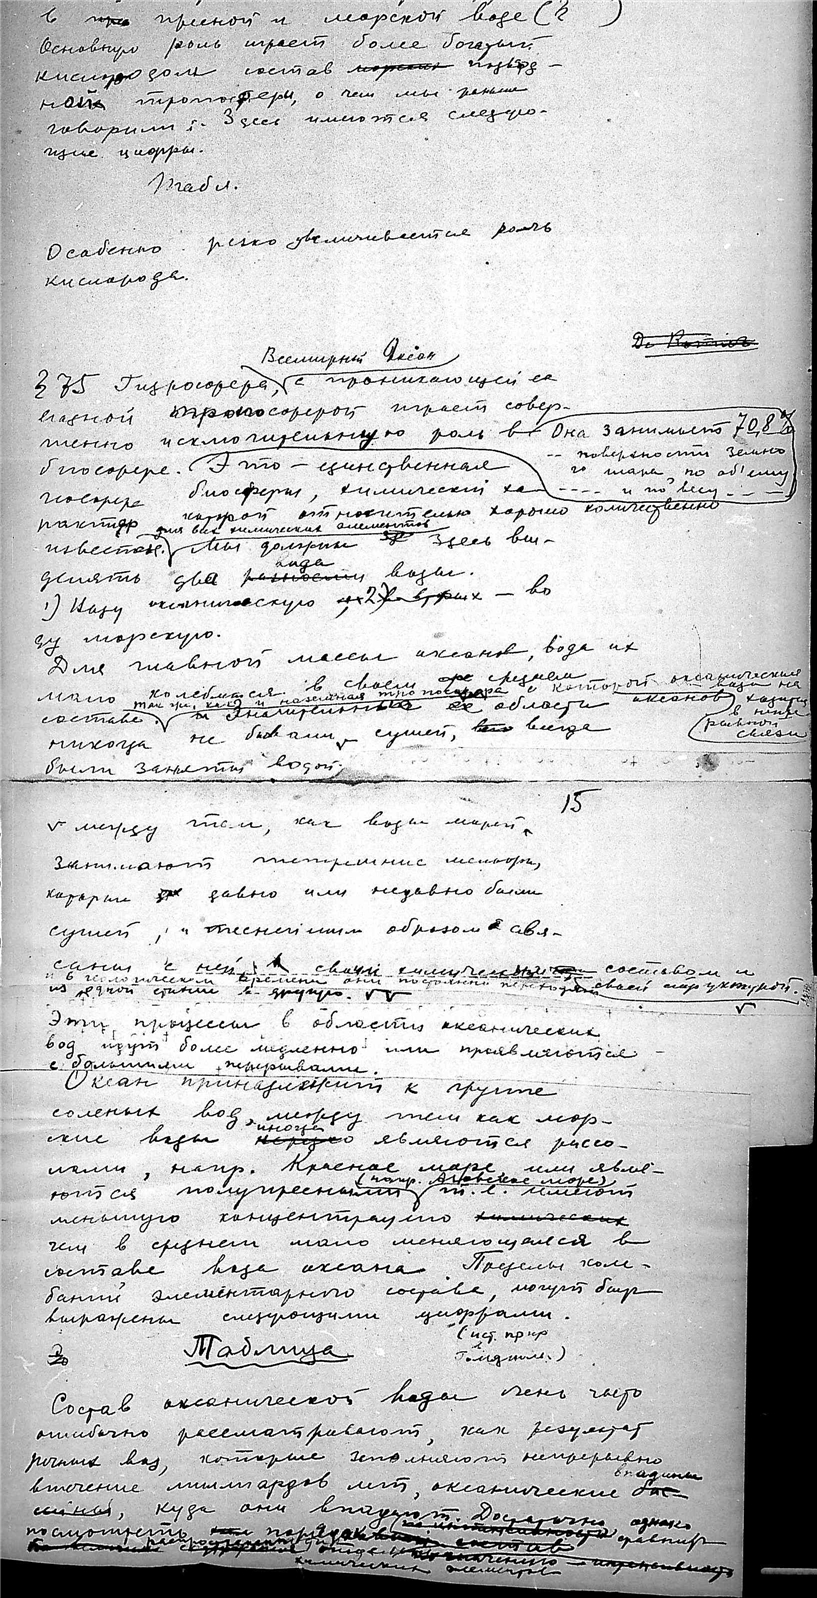 в пресной и морской воде (§ )
Основную роль играет более богатый
кислородом состав подвод-
ной тропосферы, о чем мы раньше
говорили. Здесь имеются следую-
щие цифры.
Табл.
Особенно резко увеличивается роль
кислорода.
Всемирный Океан
§ 75 Гидросфера, с проникающей ее
водной тропосферой играет совер-
шенно исключительную роль в
Она занимает 70,8%
поверхности земно
го шара по объему
и по весу
биосфере. Это – единственная
геосфера биосферы, химический ха-
рактер которой относительно хорошо количественно
для всех химических элементов
известен. Мы должны здесь вы-
делять два вида воды.
1) Воду океаническую, 2) – во
ду морскую.
Для главной массы океанов, вода их
мало колеблется в своем среднем
так же, как и наземная тропосфера с которой океаническая
вода находится
в непре
рывной
связи
составе. и значительные области океанов
никогда не бывали сушей, всегда
были заняты водой,
15
между тем, как воды морей
занимают теперешние
которые давно или недавно были
сушей, и теснейшим образом свя-
заны с ней своим химическим составом и
своей структурой.
и в геологическом времени они постоянно переходят
из одной стадии в другую.
Эти процессы в области океанических
вод идут более медленно или проявляются
с большими перерывами.
Океан принадлежит к группе
соленых вод, между тем как мор-
ские воды иногда являются рассо-
лами, напр. Красное море или явля-
ются полупресными (напр. Азовское море) т.е. имеют
меньшую концентрацию
чем в среднем мало меняющаяся в
составе вода океана. Пределы коле-
баний элементарного состава, могут быть
выражены следующими цифрами.
Таблица
Состав океанической воды очень часто
ошибочно рассматривают, как результат
речных вод, которые заполняют непрерывно
в течение миллиардов лет, океанические впадины
куда они впадают. Достаточно однако
посмотреть
химических элементов